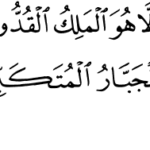 لَّا هُوَ ٱلْمَلِكُ ٱلْقُدُّو
لْجَبَّارُ ٱلْمُتَكَبِّ